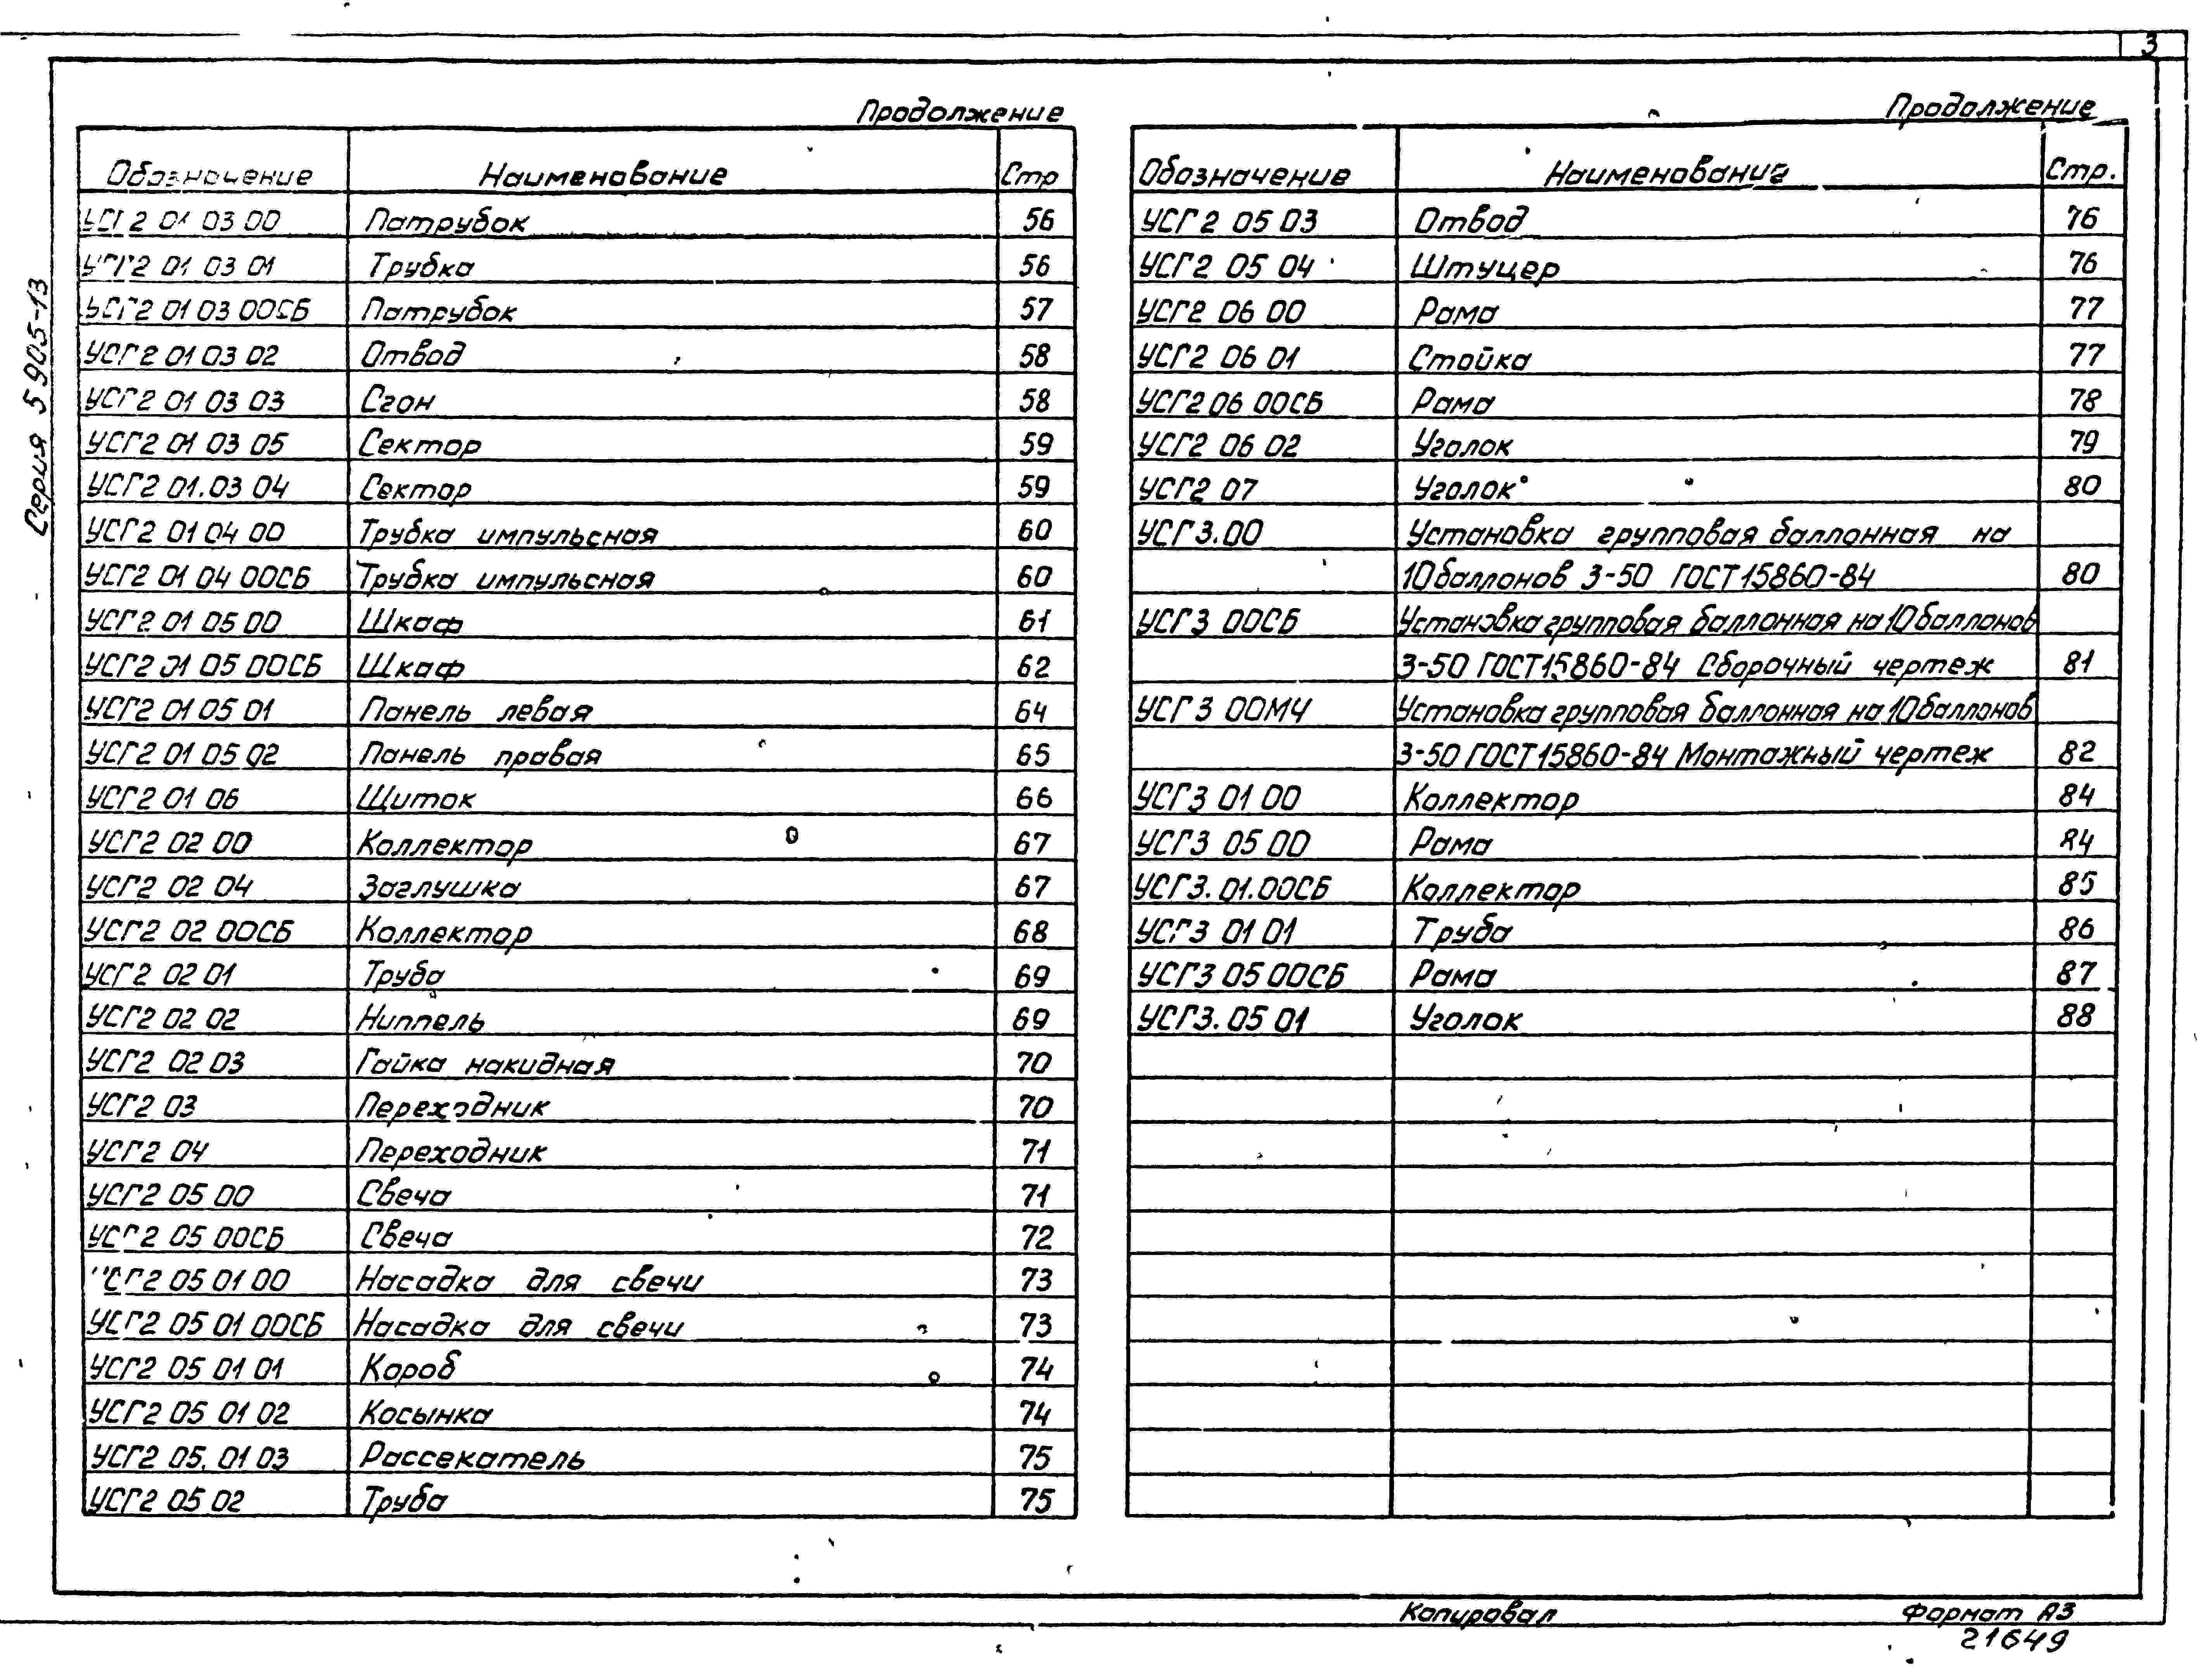 3
Серия 5 905-13
Продолжение
Обозначение Наименование Стр
УСГ2 01 03 00 Патрубок 56
УСГ2 01 03 01 Трубка 56
УСГ2 01 03 00СБ Патрубок 57
УСГ2 01 03 02 Отвод 58
УСГ2 01 03 03 Сгон 58
УСГ2 01 03 05 Сектор 59
УСГ2 01.03 04 Сектор 59
УСГ2 01 04 00 Трубка импульсная 60
УСГ2 01 04 00СБ Трубка импульсная 60
УСГ2 01 05 00 Шкаф 61
УСГ2 01 05 00СБ Шкаф 62
УСГ2 01 05 01 Панель левая 64
УСГ2 01 05 02 Панель правая 65
УСГ2 01 06 Щиток 66
УСГ2 02 00 Коллектор 67
УСГ2 02 04 Заглушка 67
УСГ2 02 00СБ Коллектор 68
УСГ2 02 01 Труба 69
УСГ2 02 02 Ниппель 69
УСГ2 02 03 Гайка накидная 70
УСГ2 03 Переходник 70
УСГ2 04 Переходник 71
УСГ2 05 00 Свеча 71
УСГ2 05 00СБ Свеча 72
УСГ2 05 01 00 Насадка для свечи 73
УСГ2 05 01 00СБ Насадка для свечи 73
УСГ2 05 01 01 Короб 74
УСГ2 05 01 02 Косынка 74
УСГ2 05. 01 03 Рассекатель 75
УСГ2 05 02 Труба 75
Продолжение
Обозначение Наименование Стр.
УСГ2 05 03 Отвод 76
УСГ2 05 04 Штуцер 76
УСГ2 06 00 Рама 77
УСГ2 06 01 Стойка 77
УСГ2 06 00СБ Рама 78
УСГ2 06 02 Уголок 79
УСГ2 07 Уголок 80
УСГ3.00 Установка групповая баллонная на
10 баллонов 3-50 ГОСТ 15860-84 80
УСГ3 00СБ Установка групповая баллонная на 10 баллонов
3-50 ГОСТ 15860-84 Сборочный чертеж 81
УСГ3 00МЧ Установка групповая баллонная на 10 баллонов
3-50 ГОСТ 15860-84 Монтажный чертеж 82
УСГ3 01 00 Коллектор 84
УСГ3 05 00 Рама 84
УСГ3.01.00СБ Коллектор 85
УСГ3 01 01 Труба 86
УСГ3 05 00СБ Рама 87
УСГ3.05 01 Уголок 88
Копировал Формат А3
21649